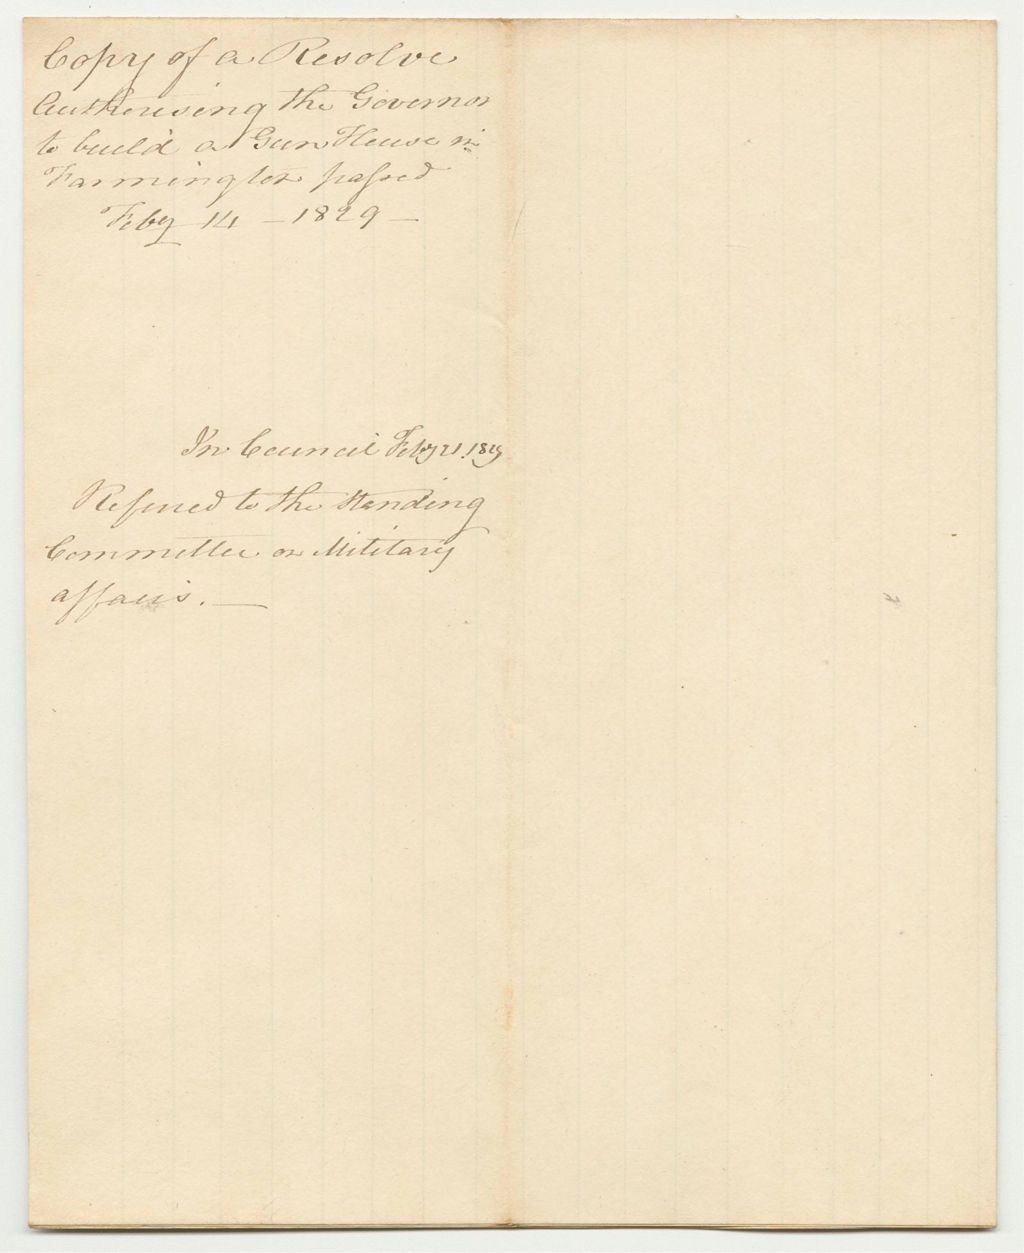 Copy of a Resolve
Authorising the Governor
to build a Gun House in
Farmington passed
Feby 14 - 1829 -
In Council Feby 21. 1829
Referred to the Standing
Committee on Military
affairs. —